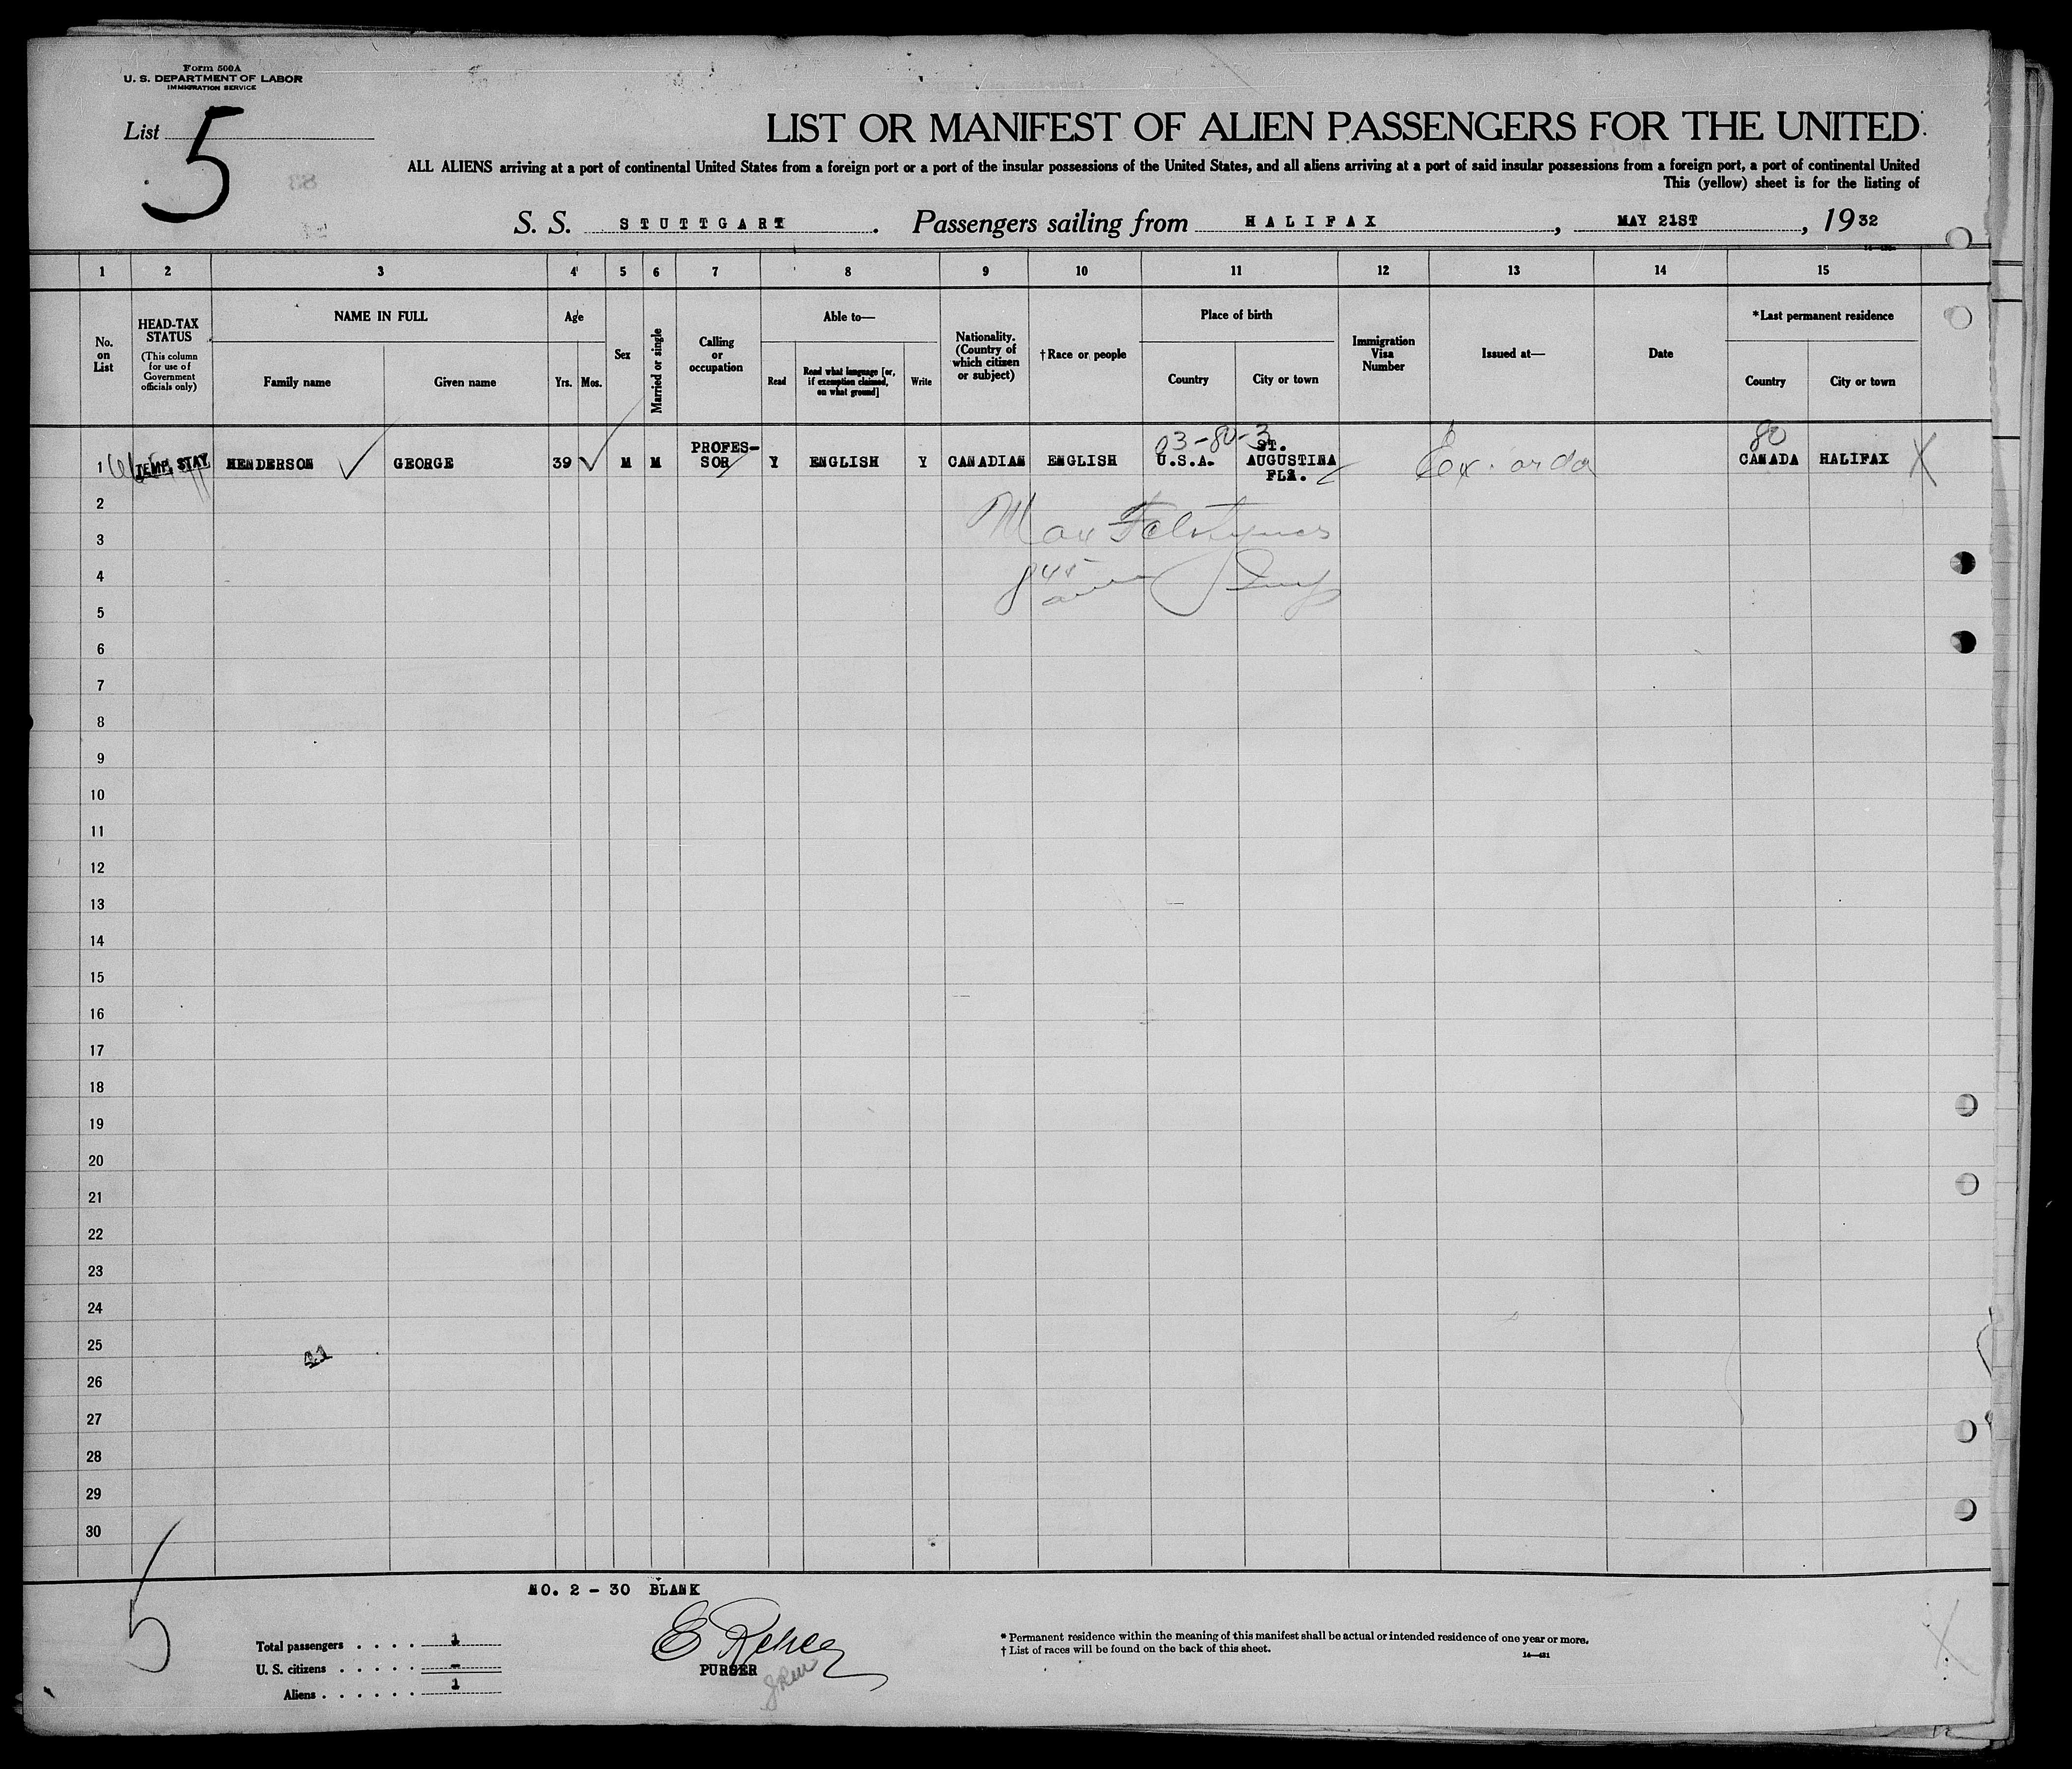 Form 500A
U. S. DEPARTMENT OF LABOR
IMMIGRATION SERVICE
List 5
LIST OR MANIFEST OF ALIEN PASSENGERS FOR THE UNITED
ALL ALIENS arriving at a port of continental United States from a foreign port or a port of the insular possessions of the United States, and all aliens arriving at a port of said insular possessions from a foreign port, a port of continental United
This (yellow) sheet is for the listing of
S. S. STUTTGART. Passengers sailing from HALIFAX, MAY 21ST, 1932
1 2 3 4 5 6 7 8 9 10 11 12 13 14 15
No. on List
HEAD-TAX STATUS
(This column for use of Government officials only)
NAME IN FULL
Family name
Given name
Age
Yrs. Mos.
Sex
Married or single
Calling or occupation
Able to—
Read
Read what language [or, if exemption claimed, on what ground]
Write
Nationality. (Country of which citizen or subject)
†Race or people
Place of birth
Country
City or town
Immigration Visa Number
Issued at—
Date
*Last permanent residence
Country
City or town
03-80-3
80
1 TEMP. STAY HENDERSON GEORGE 39 M M PROFES-SOR Y ENGLISH Y CANADIAN ENGLISH U.S.A. ST. AUGUSTINA FLA. CANADA HALIFAX X
2
3
4
5
6
7
8
9
10
11
12
13
14
15
16
17
18
19
20
21
22
23
24
25
44
26
27
28
29
30
5
NO. 2 - 30 BLANK
PURSER
Total passengers . . . . 1
U. S. citizens . . . . . -
Aliens . . . . . . 1
* Permanent residence within the meaning of this manifest shall be actual or intended residence of one year or more.
† List of races will be found on the back of this sheet.
X